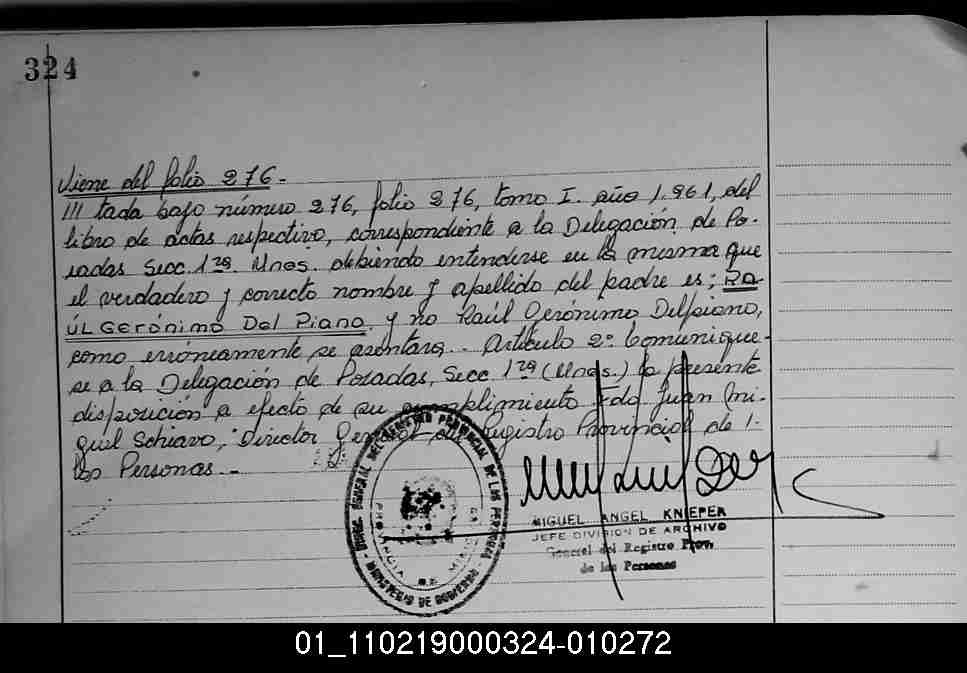 324
Viene del folio 276.-
/// tada bajo número 276, folio 276, tomo I. año 1.961, del
libro de actas respectivo, correspondiente a la Delegación de Po-
sadas Secc. 1ra. Mnes. debiendo entenderse en la misma que
el verdadero y correcto nombre y apellido del padre es; RA-
ÚL GERÓNIMO Del Piano, y no Raúl Gerónimo Delpiano,
como erróneamente se asentara.- Artículo 2º Comunique-
se a la Delegación de Posadas, Secc 1ra (Mnes.) la presente
disposición a efecto de su cumplimiento Fdo. Juan Mi-
guel Schiavo, Director General del Registro Provincial de l-
las Personas.-
DIREC. GENERAL DEL REGISTRO PROVINCIAL DE LAS PERSONAS
MINISTERIO DE GOBIERNO
PROVINCIA DE MISIONES
MIGUEL ANGEL KNIEPER
JEFE DIVISION DE ARCHIVO
General del Registro Prov.
de las Personas
01_110219000324-010272